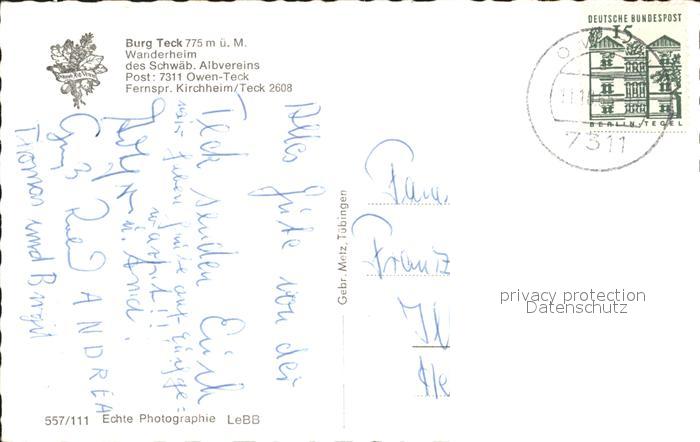 Burg Teck 775 m ü. M.
Wanderheim
des Schwäb. Albvereins
Post: 7311 Owen-Teck
Fernspr. Kirchheim/Teck 2608
DEUTSCHE BUNDESPOST
15
BERLIN/TEGEL
7311
Alles Gute von der
Teck senden Euch
wir haben heute auf
Gruß
ANDREA
Thomas und Birgit
Gebr. Metz, Tübingen
Fam.
Franz
privacy protection
Datenschutz
557/111 Echte Photographie LeBB